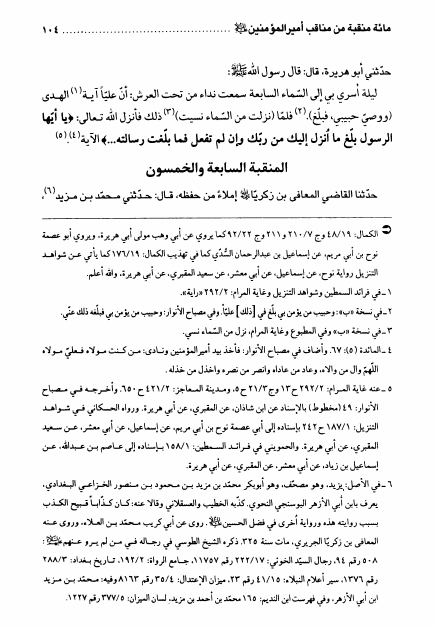 مائة منقبة من مناقب أميرالمؤمنين ﷺ ........................................ ١٠٤
حدّثني أبو هريرة، قال: قال رسول الله ﷺ:
ليلة أسري بي إلى السّماء السابعة سمعت نداء من تحت العرش: أنّ عليّاً آية(١) الهدى
(ووصيّ حبيبي، فبلّغ).(٢) فلمّا (نزلت من السّماء نسيت)(٣) ذلك فأنزل الله تعالى: ﴿يا أيّها
الرسول بلّغ ما أنزل إليك من ربّك وإن لم تفعل فما بلّغت رسالته...﴾ الآية(٤).(٥)
المنقبة السابعة والخمسون
حدّثنا القاضي المعافى بن زكريّا إملاءً من حفظه، قال: حدّثني محمّد بن مزيد(٦)،
الكمال: ٤٨/١٩ وج ٢١٠/٧ و٢١١ وج ٩٢/٢٢ كما يروي عن أبي وهب مولى أبي هريرة، ويروي أبو عصمة
نوح بن أبي مريم، عن إسماعيل بن عبدالرحمان السُّدّي كما في تهذيب الكمال: ١٧٦/١٩ كما يأتي عن شواهد
التنزيل رواية نوح، عن إسماعيل، عن أبي معشر، عن سعيد المقبري، عن أبي هريرة، والله أعلم.
١ ـ في فرائد السمطين وشواهد التنزيل وغاية المرام: ٢٩٢/٢ «راية».
٢ ـ في نسخة «ب»: وحبيب من يؤمن بي بلّغ في [ذلك] عليّاً. وفي مصباح الأنوار: وحبيب من يؤمن بي فبلغه ذلك عنّي.
٣ ـ في نسخة «ب» وفي المطبوع وغاية المرام، نزل من السّماء نسي.
٤ ـ المائدة (٥): ٦٧. وأضاف في مصباح الأنوار: فأخذ بيد أميرالمؤمنين ونادى: من كنت مولاه فعليّ مولاه
اللّهمّ وال من والاه، وعاد من عاداه وانصر من نصره واخذل من خذله.
٥ ـ عنه غاية المرام: ٢٩٢/٢ ح١٣ وج ٢١/٣ ح٥، ومدينة المعاجز: ٤٢١/٢ ح ٦٥٠، وأخرجه في مصباح
الأنوار: ٤٩ (مخطوط) بالإسناد عن ابن شاذان، عن المقبري، عن أبي هريرة. ورواه الحسكاني في شواهد
التنزيل: ١٨٧/١ ح ٢٤٢ بإسناده إلى أبي عصمة نوح بن أبي مريم، عن إسماعيل، عن أبي معشر، عن سعيد
المقبري، عن أبي هريرة. والحمويني في فرائد السمطين: ١٥٨/١ بإسناده إلى عاصم بن عبدالله، عن
إسماعيل بن زياد، عن أبي معشر، عن المقبري، عن أبي هريرة.
٦ ـ في الأصل: يزيد، وهو مصحّف، وهو أبوبكر محمّد بن مزيد بن محمود بن منصور الخزاعي البغدادي،
يعرف بابن أبي الأزهر البوسنجي النحوي. كذّبه الخطيب والعسقلاني وقالا عنه: كان كذّاباً قبيح الكذب
بسبب روايته هذه ورواية أُخرى في فضل الحسين. روى عن أبي كريب محمّد بن العلاء، وروى عنه
المعافى بن زكريّا الجريري، مات سنة ٣٢٥. ذكره الشيخ الطوسي في رجاله في من لم يرو عنهم:
٥٠٨ رقم ٩٤، رجال السيّد الخوئي: ٢٢٢/١٧ رقم ١١٧٥٧، جامع الرواة: ١٩٢/٢، تاريخ بغداد: ٢٨٨/٣
رقم ١٣٧٦، سير أعلام النبلاء: ٤١/١٥ رقم ٢٣، ميزان الإعتدال: ٣٥/٤ رقم ٨١٦٣ وفيه: محمّد بن مزيد
ابن أبي الأزهر، وفي فهرست ابن النديم: ١٦٥ محمّد بن أحمد بن مزيد، لسان الميزان: ٣٧٧/٥ رقم ١٢٢٧.